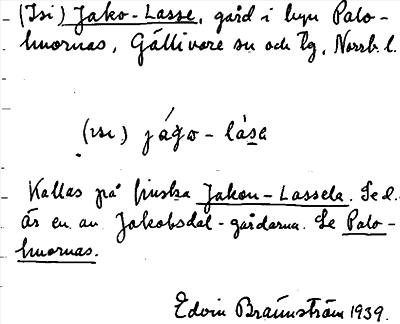 (Isi) Jako-Lasse, gård i byn Palo-
huornas, Gällivare sn och tg, Norrb. l.
(ısı.) jágo-lása
Kallas på finska Jakon-Lassela. Se d.
är en av Jakobsdal-gårdarna. Se Palo-
huornas.
Edvin Brännström 1939.